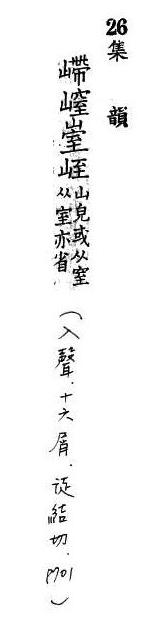 26 集韻
嵽㠋崒峌山皃或从窒
从室亦省
（入聲．十六屑．徒結切．P701）